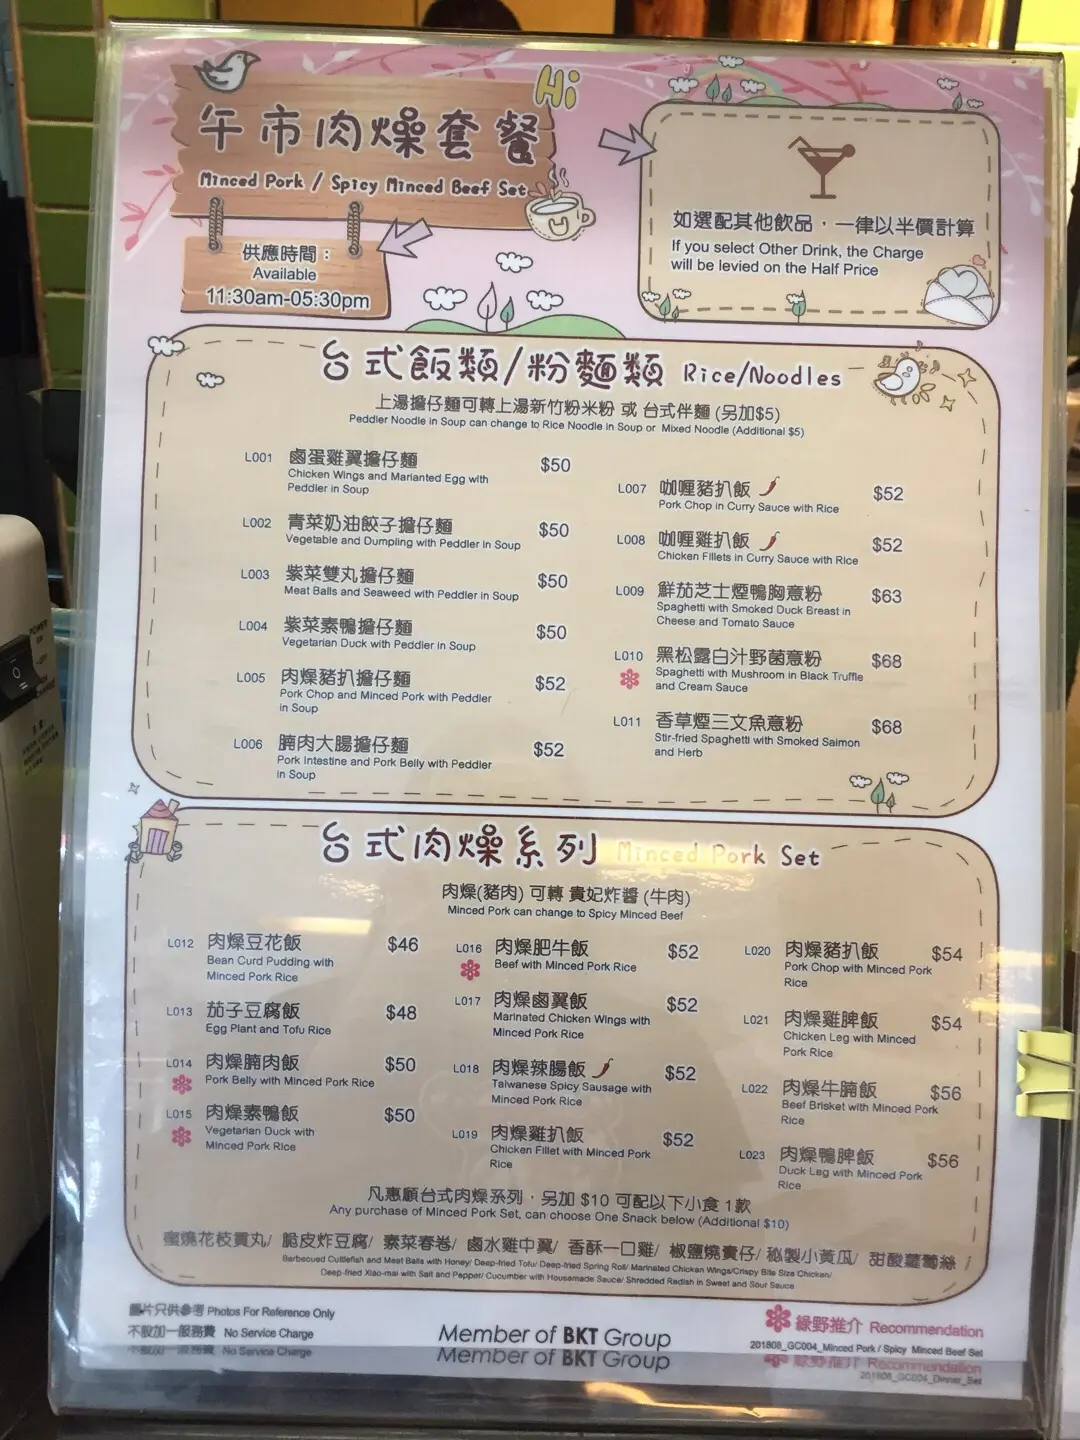 Hi
午市肉燥套餐
Minced Pork / Spicy Minced Beef Set
供應時間：
Available
11:30am-05:30pm
如選配其他飲品，一律以半價計算
If you select Other Drink, the Charge
will be levied on the Half Price
台式飯類/粉麵類 Rice/Noodles
上湯擔仔麵可轉上湯新竹粉米粉 或 台式伴麵 (另加$5)
Peddler Noodle in Soup can change to Rice Noodle in Soup or Mixed Noodle (Additional $5)
L001 鹵蛋雞翼擔仔麵 $50
Chicken Wings and Marianted Egg with
Peddler in Soup
L002 青菜奶油餃子擔仔麵 $50
Vegetable and Dumpling with Peddler in Soup
L003 紫菜雙丸擔仔麵 $50
Meat Balls and Seaweed with Peddler in Soup
L004 紫菜素鴨擔仔麵 $50
Vegetarian Duck with Peddler in Soup
L005 肉燥豬扒擔仔麵 $52
Pork Chop and Minced Pork with Peddler
in Soup
L006 腩肉大腸擔仔麵 $52
Pork Intestine and Pork Belly with Peddler
in Soup
L007 咖喱豬扒飯 $52
Pork Chop in Curry Sauce with Rice
L008 咖喱雞扒飯 $52
Chicken Fillets in Curry Sauce with Rice
L009 鮮茄芝士煙鴨胸意粉 $63
Spaghetti with Smoked Duck Breast in
Cheese and Tomato Sauce
L010 黑松露白汁野菌意粉 $68
Spaghetti with Mushroom in Black Truffle
and Cream Sauce
L011 香草煙三文魚意粉 $68
Stir-fried Spaghetti with Smoked Salmon
and Herb
台式肉燥系列 Minced Pork Set
肉燥(豬肉) 可轉 貴妃炸醬 (牛肉)
Minced Pork can change to Spicy Minced Beef
L012 肉燥豆花飯 $46
Bean Curd Pudding with
Minced Pork Rice
L013 茄子豆腐飯 $48
Egg Plant and Tofu Rice
L014 肉燥腩肉飯 $50
Pork Belly with Minced Pork Rice
L015 肉燥素鴨飯 $50
Vegetarian Duck with
Minced Pork Rice
L016 肉燥肥牛飯 $52
Beef with Minced Pork Rice
L017 肉燥鹵翼飯 $52
Marinated Chicken Wings with
Minced Pork Rice
L018 肉燥辣腸飯 $52
Taiwanese Spicy Sausage with
Minced Pork Rice
L019 肉燥雞扒飯 $52
Chicken Fillet with Minced Pork
Rice
L020 肉燥豬扒飯 $54
Pork Chop with Minced Pork
Rice
L021 肉燥雞脾飯 $54
Chicken Leg with Minced
Pork Rice
L022 肉燥牛腩飯 $56
Beef Brisket with Minced Pork
Rice
L023 肉燥鴨脾飯 $56
Duck Leg with Minced Pork
Rice
凡惠顧台式肉燥系列，另加 $10 可配以下小食 1款
Any purchase of Minced Pork Set, can choose One Snack below (Additional $10)
蜜燒花枝貢丸/ 脆皮炸豆腐/ 素菜春卷/ 鹵水雞中翼/ 香酥一口雞/ 椒鹽燒賣仔/ 秘製小黃瓜/ 甜酸蘿蔔絲
Barbecued Cuttlefish and Meat Balls with Honey/ Deep-fried Tofu/ Deep-fried Spring Roll/ Marinated Chicken Wings/Crispy Bite Size Chicken/
Deep-fried Xiao-mai with Salt and Pepper/ Cucumber with Housemade Sauce/ Shredded Radish in Sweet and Sour Sauce
圖片只供參考 Photos For Reference Only
不設加一服務費 No Service Charge
不設加一服務費 No Service Charge
Member of BKT Group
Member of BKT Group
綠野推介 Recommendation
201808_GC004_Minced Pork / Spicy Minced Beef Set
綠野推介 Recommendation
201808_GC004_Dinner_Set
POWER